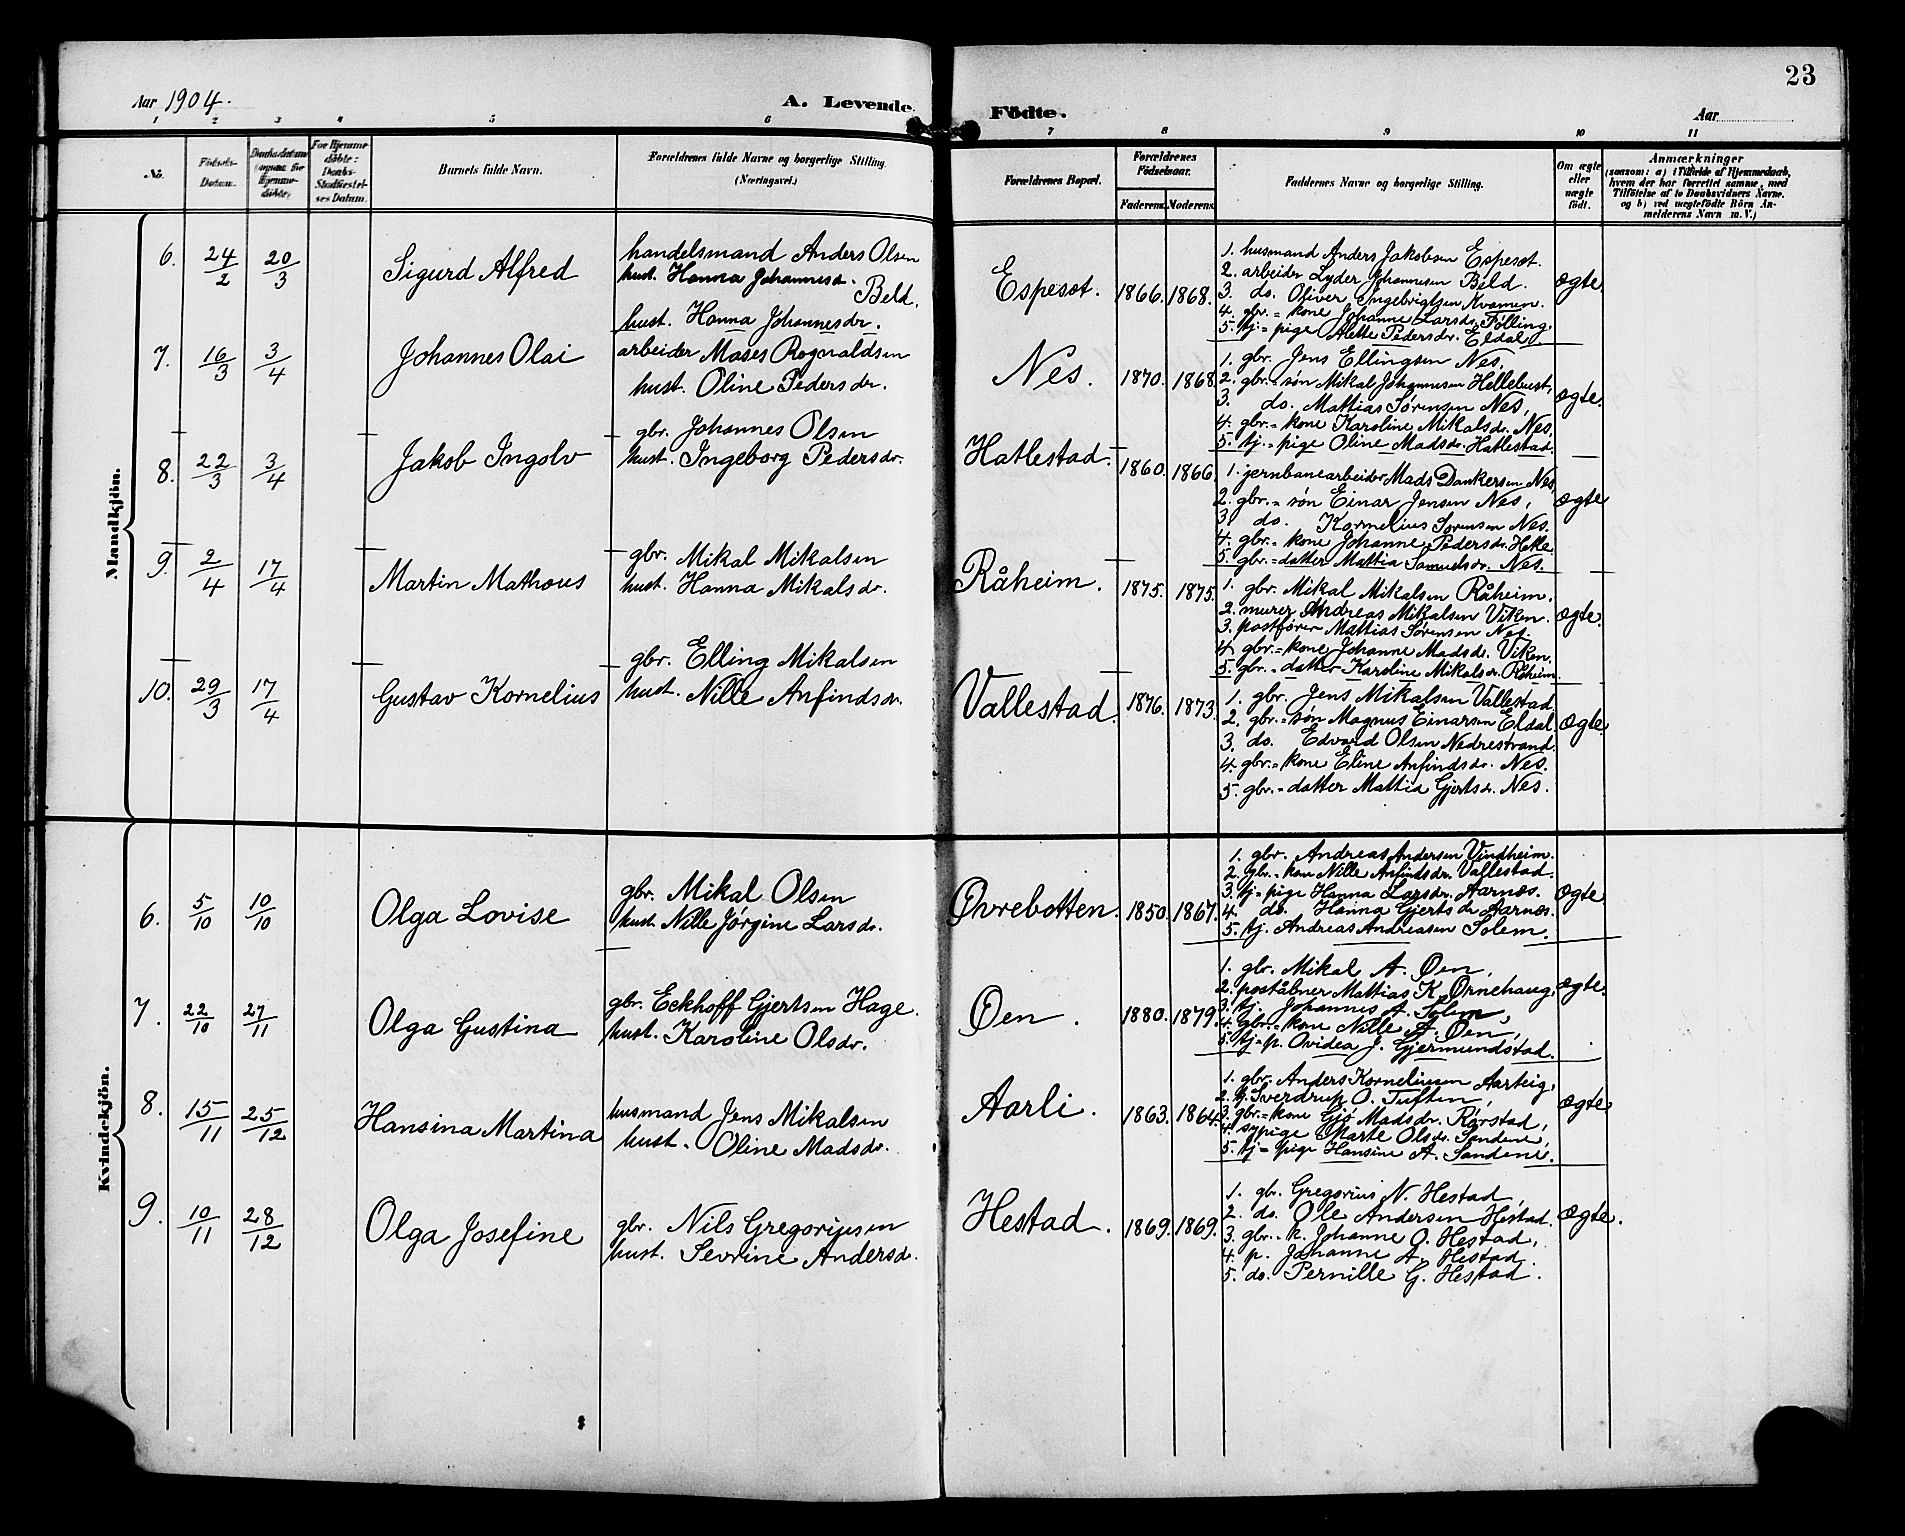 23
Aar 1904. A. Levende Födte. Aar
1 2 3 4 5 6 7 8 9 10 11
No. Födsels-Datum. Barnets fulde Navn. Forældrenes fulde Navne og borgerlige Stilling. (Næringsvei.) Forældrenes Bopæl. Forældrenes Födselsaar. Faderens. Moderens. Faddernes Navne og borgerlige Stilling. Om ægte eller uægte födt. Anmærkninger
(saasom: a) i Tilfælde af Hjemmedaab,
hvem der har forrettet samme, med
Tilföielse af to Daabsvidners Navne.
og b) ved uægtefödte Börn An-
melderens Navn m. V.)
Mandkjön.
6. 24/2 20/3 Sigurd Alfred
handelsmand Anders Olsen
hust. Hanna Johannesd.
Beld.
hust. Hanna Johannesdr.
Espeset. 1866. 1868.
1. husmand Anders Jakobsen Espeset.
2. arbeider Lyder Johannesen Beld.
3. do. Oliver Ingebrigtsen Kvamen.
4. gbr.=kone Johanne Larsdr. Fölling.
5. tj.=pige Alette Pedersdr. Eldal.
ægte.
7. 16/3 3/4 Johannes Olai
arbeider Moses Rognaldsen
hust. Oline Pedersdr.
Nes. 1870. 1868.
1. gbr. Jens Ellingsen Nes,
2. gbr.=søn Mikal Johannesen Hellebust,
3. do. Mattias Sørensen Nes,
4. gbr.=kone Karoline Mikalsdr. Nes.
5. tj.=pige Oline Madsdr. Hatlestad.
ægte.
8. 22/3 3/4 Jakob Ingolv
gbr. Johannes Olsen
hust. Ingeborg Pedersdr.
Hatlestad. 1860. 1866.
1. jernbanearbeider Mads Dankersen Nes,
2. gbr.=søn Einar Jensen Nes,
3. do. Kornelius Sørensen Nes.
4. gbr.=kone Johanne Pedersdr. Helle.
5. gbr.=datter Mattia Samuelsdr. Nes.
ægte
9. 2/4 17/4 Martin Matheus
gbr. Mikal Mikalsen
hust. Hanna Mikalsdr.
Råheim. 1875. 1875.
1. gbr. Mikal Mikalsen Råheim.
2. murer Andreas Mikalsen Viken.
3. postfører Mattias Sørensen Nes.
4. gbr.=kone Johanne Madsdr. Viken.
5. gbr.=datter Karoline Mikalsdr. Råheim.
ægte.
10. 29/3 17/4 Gustav Kornelius
gbr. Elling Mikalsen
hust. Nille Anfindsdr.
Vallestad. 1876. 1873.
1. gbr. Jens Mikalsen Vallestad.
2. gbr.=søn Magnus Einarsen Eldal
3. do. Edvard Olsen Nedrestrand.
4. gbr.=kone Eline Anfindsdr. Nes.
5. gbr.=datter Mattia Gjertsdr. Nes.
ægte
Kvindekjön.
6. 5/10 10/10 Olga Lovise
gbr. Mikal Olsen
hust. Nille Jörgine Larsdr.
Øvrebotten. 1850. 1867.
1. gbr. Andreas Andersen Vindheim.
2. gbr.=kone Nille Anfindsdr. Vallestad.
3. tj=pige Hanna Larsdr. Aarnes.
4. do. Hanna Gjertsdr Aarnes.
5. tj. Andreas Andreasen Solem.
ægte
7. 22/10 27/11 Olga Gustina
gbr. Eckhoff Gjertsen Hage.
hust. Karoline Olsdr.
Øen. 1880. 1879.
1. gbr. Mikal A. Øen,
2. poståbner Mattias K. Ørnehaug,
3. tj. Johannes A. Solem,
4. gbr.=kone Nille A. Øen,
5. tj=p. Ovidea J. Gjermundstad.
ægte.
8. 15/11 25/12 Hansina Martina
husmand Jens Mikalsen
hust. Oline Madsdr.
Aarli. 1863. 1864.
1. gbr. Anders Korneliusen Aarteig,
2. tj. Sverdrup O. Tuften,
3. gbr.=kone Gjö Madsdr. Rørstad,
4. sypige Marte Olsdr. Sandene,
5. tj=pige Hansine A. Sandene.
ægte
9. 10/11 28/12 Olga Josefine
gbr. Nils Gregoriusen
hust. Sevrine Andersdr.
Hestad. 1869. 1869.
1. gbr. Gregorius N. Hestad,
2. do. Ole Andersen Hestad.
3. gbr.=k. Johanne O. Hestad,
4. p. Johanne A. Hestad
5. do. Pernille G. Hestad.
ægte.